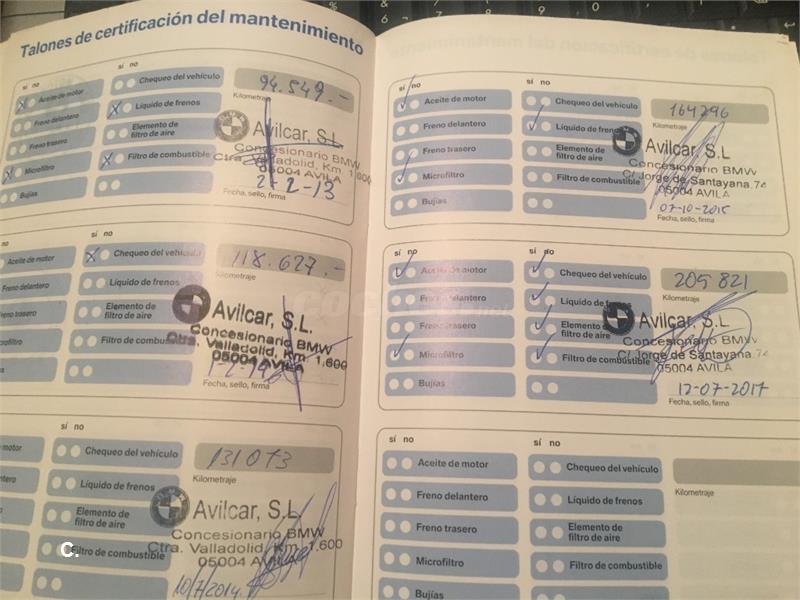 Talones de certificación del mantenimiento
sí no
Aceite de motor
Freno delantero
Freno trasero
Microfiltro
Bujías
Chequeo del vehículo
Líquido de frenos
Elemento de
filtro de aire
Filtro de combustible
94.549.-
Kilometraje
Avilcar, S.L.
Concesionario BMW
Ctra. Valladolid, Km
05004 AVILA
2-2-13
Fecha, sello, firma
no
Aceite de motor
Freno delantero
Freno trasero
Microfiltro
Bujías
sí no
Chequeo del vehículo
Líquido de frenos
Elemento de
filtro de aire
Filtro de combustible
118.627.-
Kilometraje
Avilcar, S.L.
Concesionario BMW
Ctra. Valladolid, Km. 1,600
05004 AVILA
Fecha, sello, firma
motor
sí no
Chequeo del vehículo
Líquido de frenos
Elemento de
filtro de aire
Filtro de combustible
131073
Kilometraje
Avilcar, S.L.
Concesionario BMW
Ctra. Valladolid, Km. 1,600
05004 AVILA
10/7/2014
C.
sí no
Aceite de motor
Freno delantero
Freno trasero
Microfiltro
Bujías
sí no
Chequeo del vehículo
Líquido de frenos
Elemento de
filtro de aire
Filtro de combustible
164296
Kilometraje
Avilcar, S.L.
Concesionario BMW
C/ Jorge de Santayana, 74
05004 AVILA
07-10-2015
Fecha, sello, firma
sí no
Aceite de motor
Freno delantero
Freno trasero
Microfiltro
Bujías
sí no
Chequeo del vehículo
Líquido de frenos
Elemento de
filtro de aire
Filtro de combustible
205821
Kilometraje
Avilcar, S.L.
Concesionario BMW
C/ Jorge de Santayana, 74
05004 AVILA
12-07-2017
Fecha, sello, firma
sí no
Aceite de motor
Freno delantero
Freno trasero
Microfiltro
Bujías
sí no
Chequeo del vehículo
Líquido de frenos
Elemento de
filtro de aire
Filtro de combustible
Kilometraje